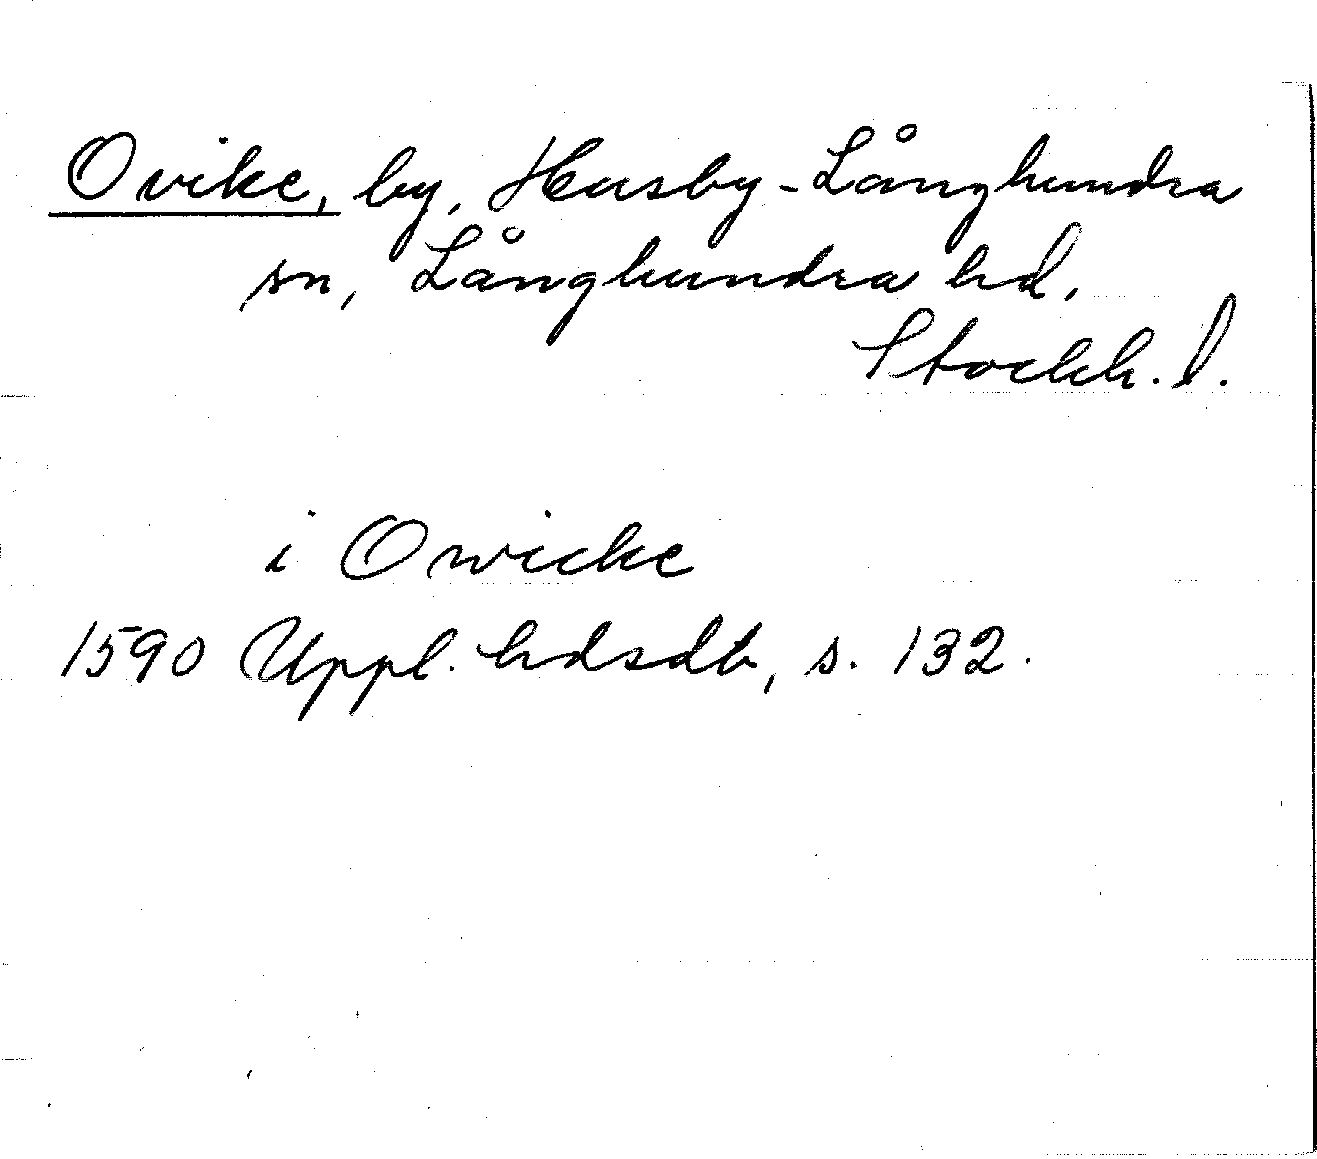 Ovike, by, Husby-Långhundra
sn, Långhundra hd,
Stockh. l.
i Owicke
1590 Uppl. hdsdb, s. 132.